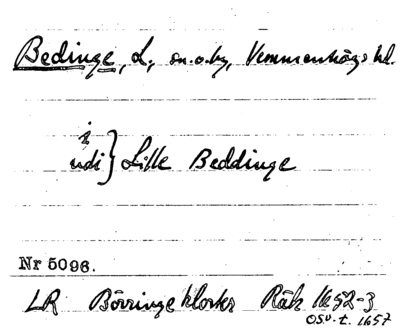 Bedinge, L., sn.o.by, Vemmenhögs hd.
i
udi } Lille Beddinge
Nr 5096.
LR Börringe kloster Räk 1652-3
o.s.v. t. 1657